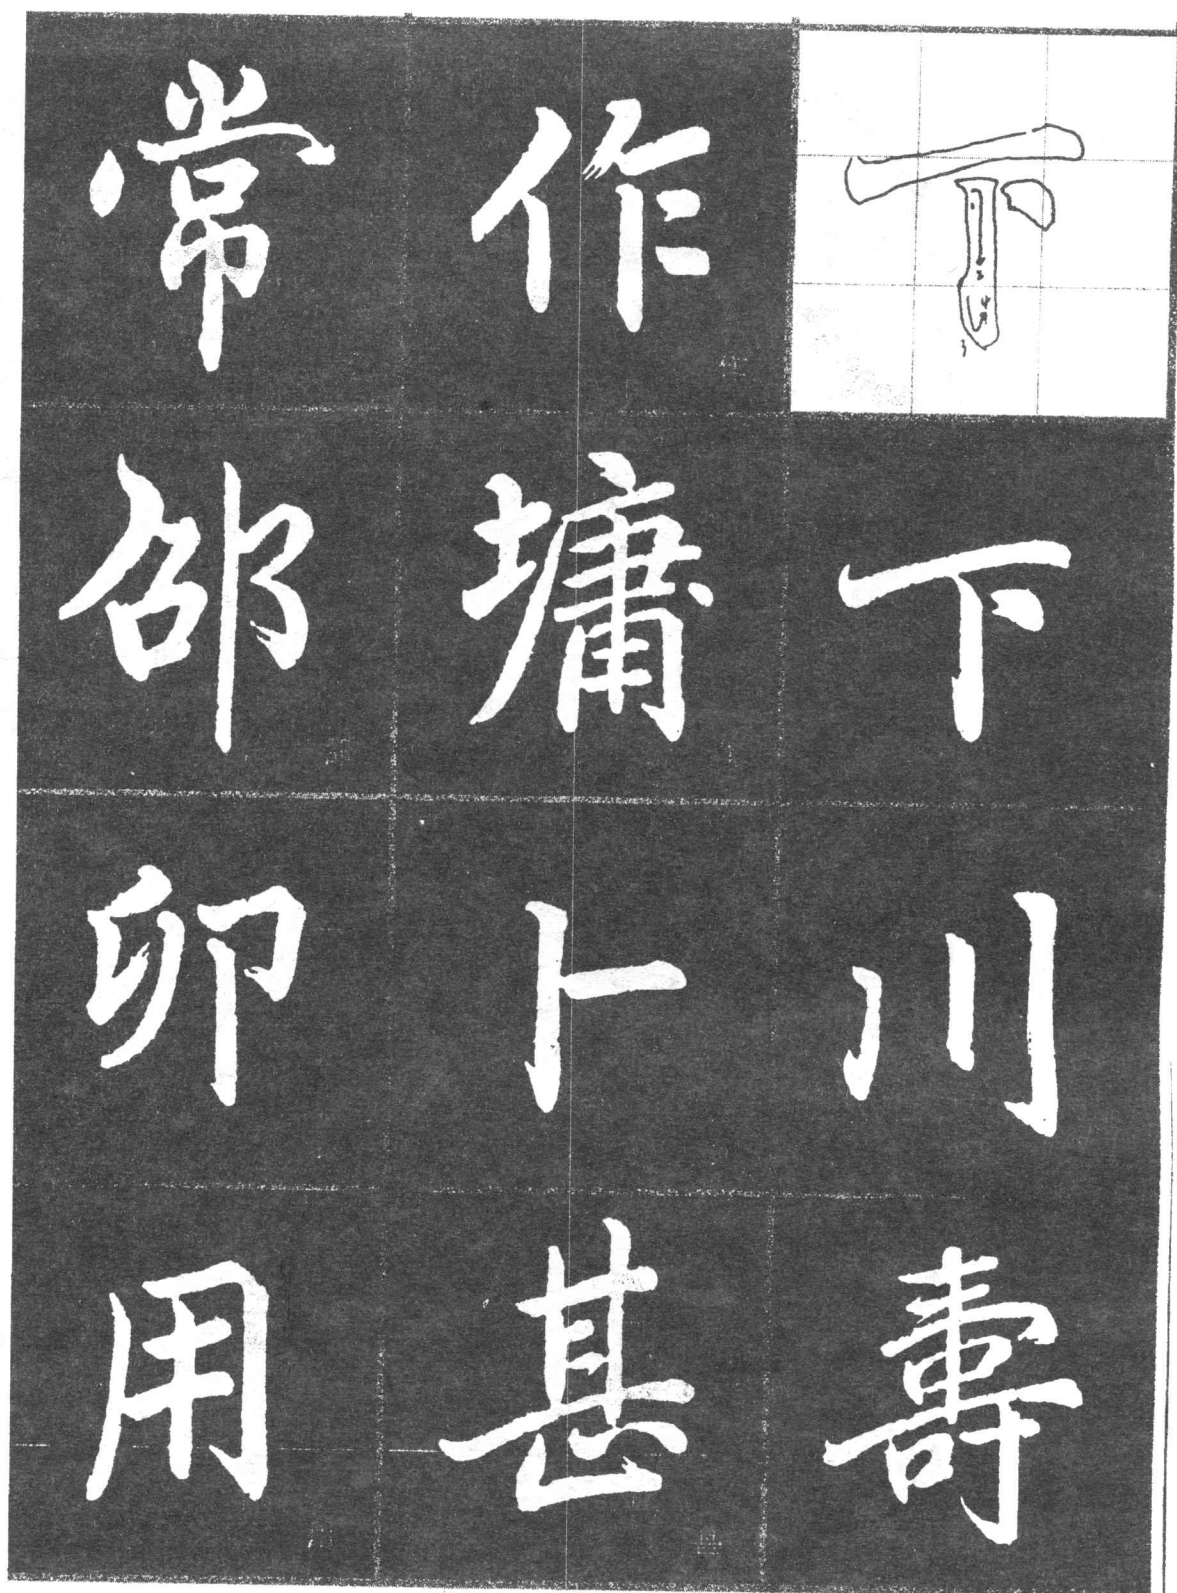 下
下
川
壽
作
墉
卜
甚
常
邵
卯
用